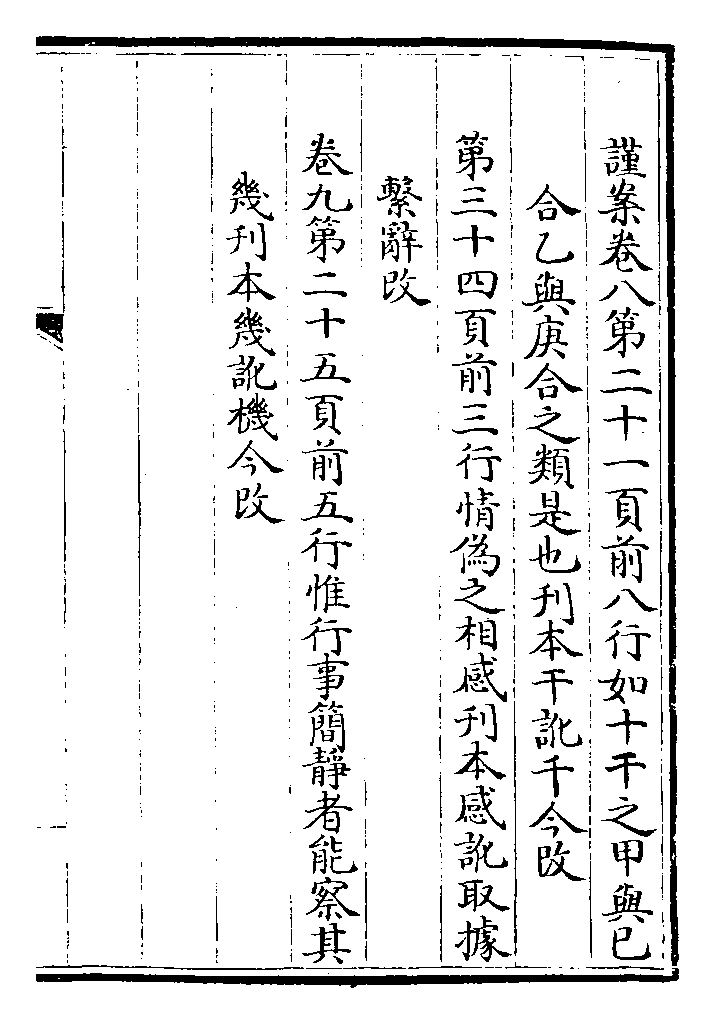 謹案卷八第二十一頁前八行如十干之甲與已
合乙與庚合之類是也刋本干訛千今改
第三十四頁前三行情偽之相感刋本感訛取據
繫辭改
卷九第二十五頁前五行惟行事簡靜者能察其
幾刋本幾訛機今改